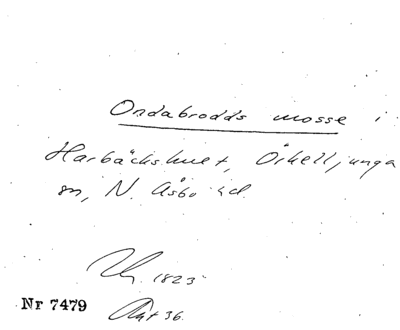 Ondabrodds mosse i
Harbäckshult, Örkelljunga
sn, N. Åsbo hd.
1823
Nr 7479
36.